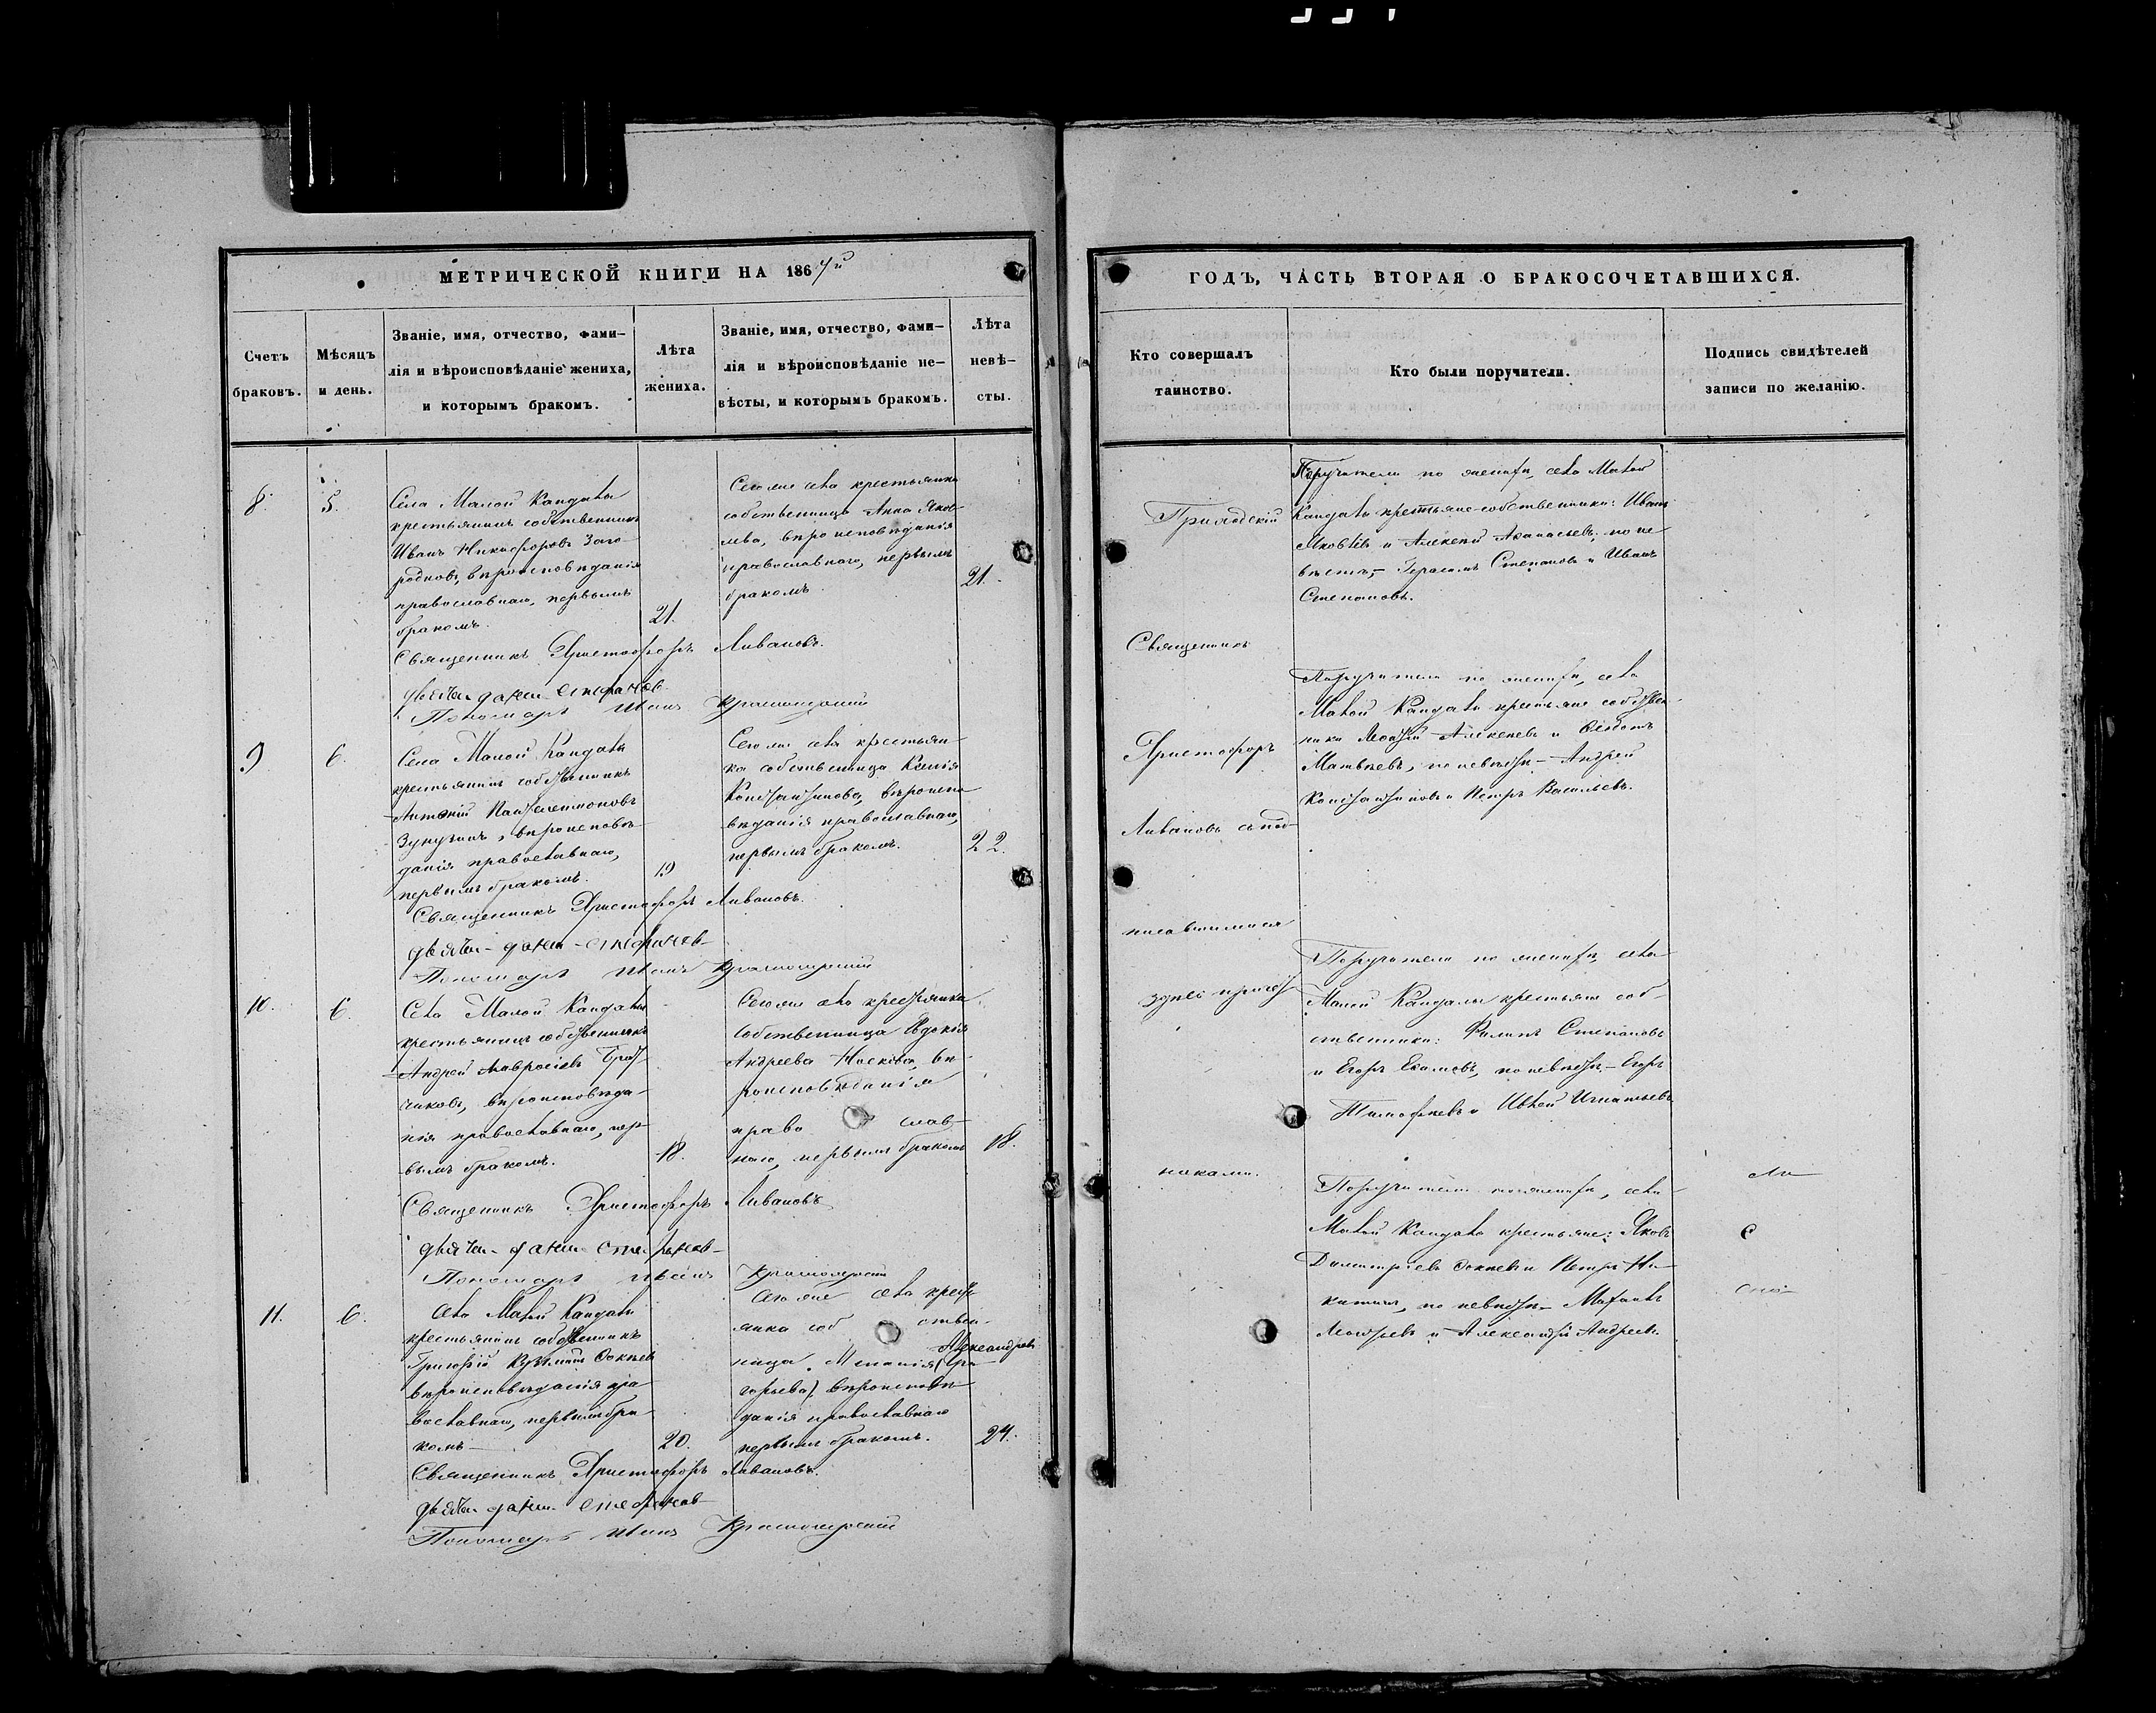 МЕТРИЧЕСКОЙ КНИГИ НА 1867й
Счетъ браковъ.
Мѣсяцъ и день.
Званіе, имя, отчество, фами-
лія и вѣроисповѣданіе жениха,
и которымъ бракомъ.
Лѣта
жениха.
Званіе, имя, отчество, фами-
лія и вѣроисповѣданіе не-
вѣсты, и которымъ бракомъ.
Лѣта
невѣ-
сты.
8. 5.
Села Малой Кандалы
крестьянинъ собственникъ
Иванъ Никифоровъ Заго-
родновъ, вѣроисповѣданія
православнаго, первымъ
бракомъ.
21.
Сегоже села крестьянка
собственница Анна Яков-
лева, вѣроисповѣданія
православнаго, первымъ
бракомъ.
21.
Священникъ Христофоръ Ливановъ.
Пономарь Иванъ
9 6.
Села Малой Кандалы
крестьянинъ собственникъ
Антоній Пантелеимоновъ
вѣроисповѣ-
данія православнаго,
первымъ бракомъ.
19
Сегоже села крестьян-
ка собственница Ксенія
Константинова, вѣроиспо-
вѣданія православнаго,
первымъ бракомъ.
22.
Священникъ Христофоръ Ливановъ.
Пономарь Иванъ
10. 6.
Села Малой Кандалы
крестьянинъ собственникъ
Андрей
вѣроисповѣда-
нія православнаго, пер-
вымъ бракомъ.
18.
Сегоже села крестьянка
собственница Евдокія
Андреева Носкова, вѣ-
роисповѣданія
право слав-
наго, первымъ бракомъ
18.
Священникъ Христофоръ Ливановъ
Пономарь Иванъ
11. 6.
Села Малой Кандалы
крестьянинъ собственникъ
Григорій Кузьминъ
вѣроисповѣданія пра-
вославнаго, первымъ бра-
комъ
20.
Сегоже села кресть-
янка соб ствен-
Александрова
ница Меланія (Гри-
горьева), вѣроисповѣ-
данія православнаго
первымъ бракомъ.
24.
Священникъ Христофоръ Ливановъ.
Пономарь Иванъ
ГОДЪ, ЧАСТЬ ВТОРАЯ О БРАКОСОЧЕТАВШИХСЯ.
Кто совершалъ
таинство.
Кто были поручители.
Подпись свидѣтелей
записи по желанію.
Приходскій
Священникъ
Христофоръ
Ливановъ съ под-
писавшимися
здѣсь причет-
никами.
Поручители по женихѣ, села Малой
Кандалы крестьяне-собственники: Иванъ
Яковлевъ и Алексѣй Аѳанасьевъ, по не-
вѣстѣ,- Герасимъ Степановъ и Иванъ
Степановъ.
Поручители по женихѣ, села
Малой Кандалы крестьяне собствен-
ники Моисей Алексѣевъ и Ѳедотъ
Матвѣевъ, по невѣстѣ - Андрей
Константиновъ и Петръ Васильевъ.
Поручители по женихѣ, села
Малой Кандалы крестьяне соб-
ственники: Филипъ Степановъ
и Егоръ Екимовъ, по невѣстѣ - Егоръ
Тимофѣевъ и Игнатьевъ
Поручители по женихѣ, села
Малой Кандалы крестьяне: Яковъ
Димитріевъ и Петръ Ни-
китинъ, по невѣстѣ -
и Александръ Андреевъ.